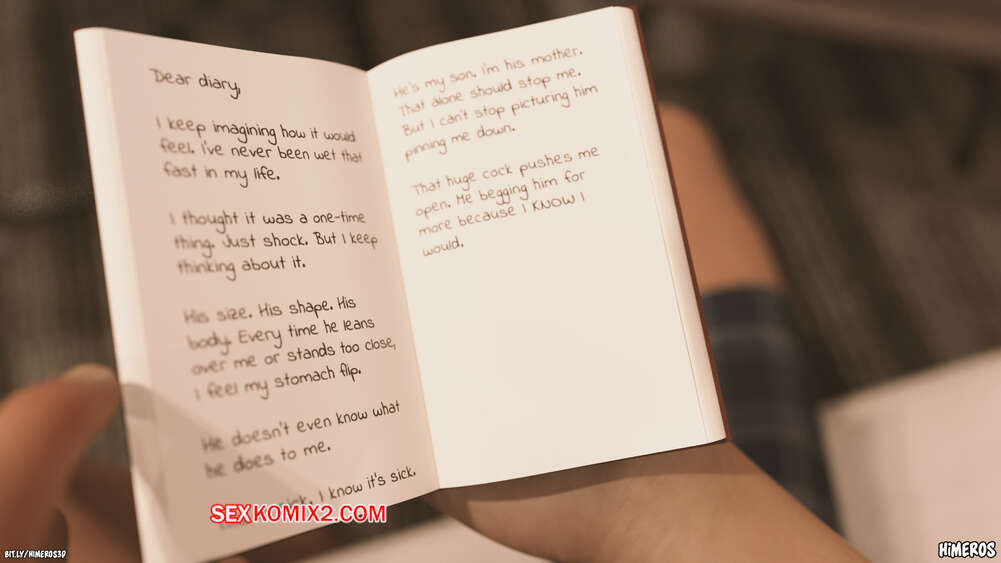 Dear diary,
I keep imagining how it would
feel. I've never been wet that
fast in my life.
I thought it was a one-time
thing. Just shock. But I keep
thinking about it.
His size. His shape. His
body. Every time he leans
over me or stands too close,
I feel my stomach flip.
He doesn't even know what
he does to me.
sick. I know it's sick.
He's my son. i'm his mother.
That alone should stop me.
But I can't stop picturing him
pinning me down.
That huge cock pushes me
open. Me begging him for
more because I KNOW I
would.
SEXKOMIX2.COM
BIT.LY/HIMEROS3D
HiMEROS